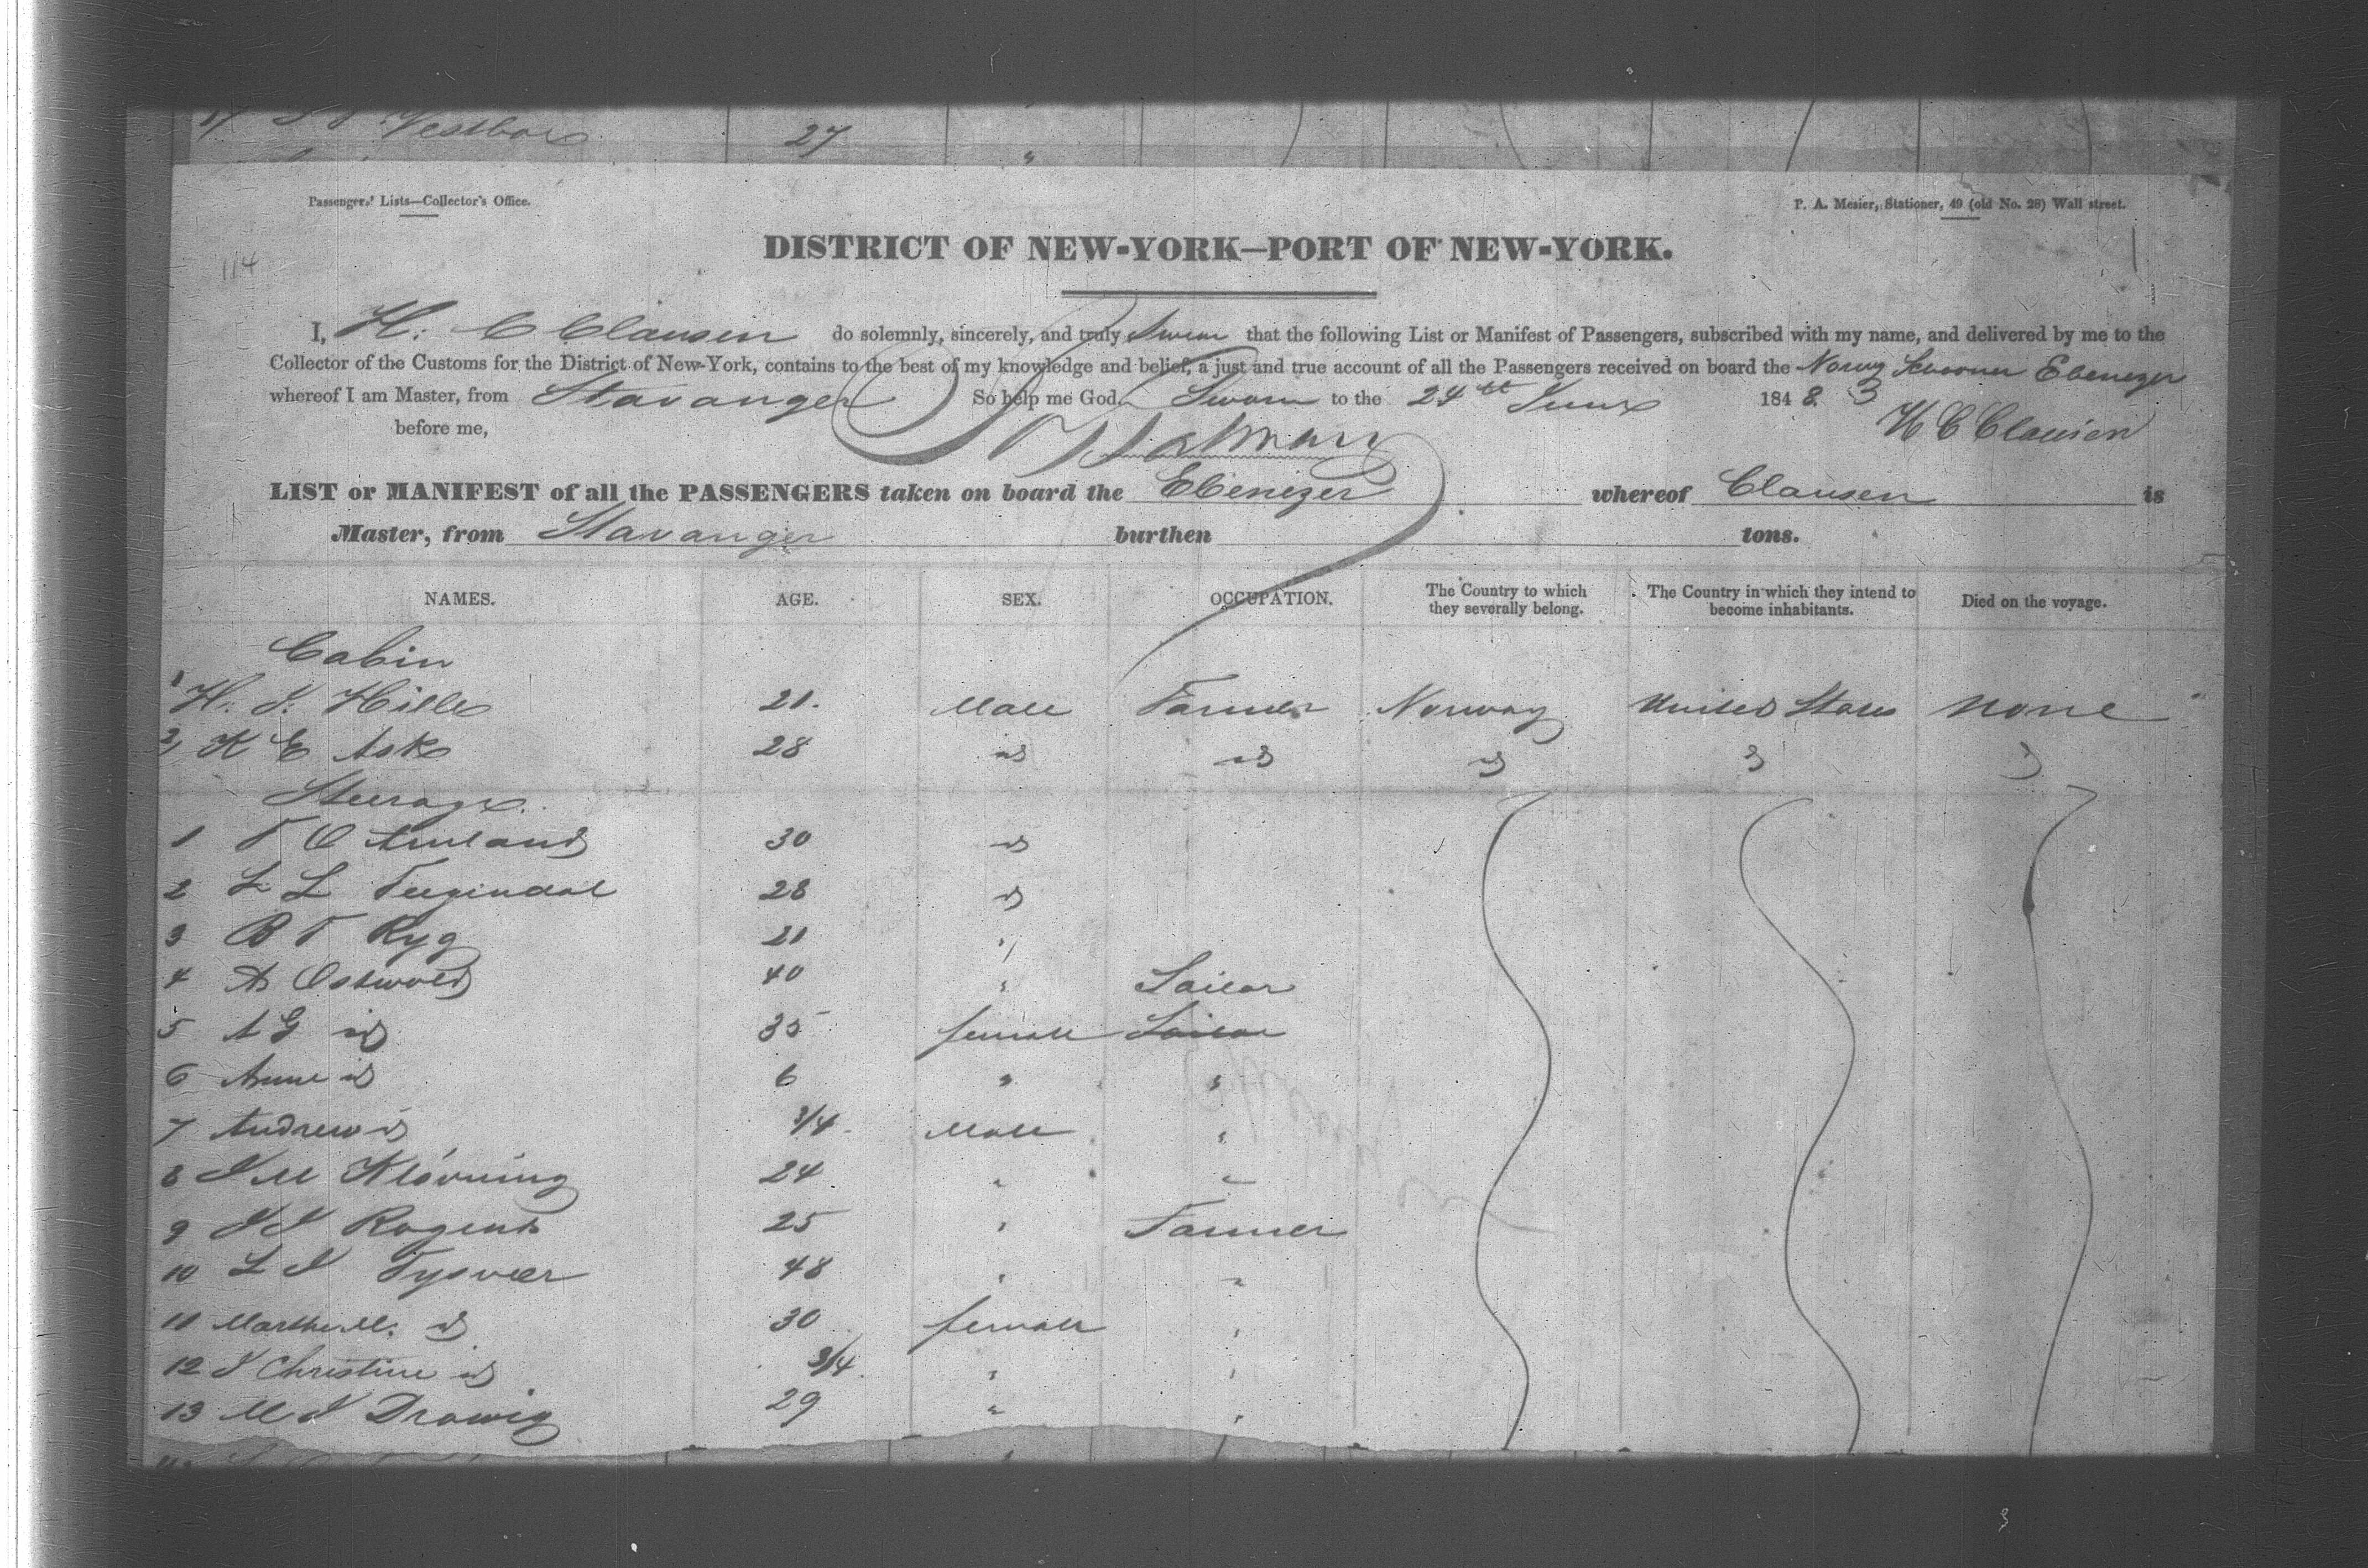 17 Vestboe 27 "
Passengers' Lists—Collector's Office.
P. A. Mesier, Stationer, 49 (old No. 28) Wall street.
114
DISTRICT OF NEW-YORK—PORT OF NEW-YORK.
I, H. C Clausen do solemnly, sincerely, and truly Swear that the following List or Manifest of Passengers, subscribed with my name, and delivered by me to the
Collector of the Customs for the District of New-York, contains to the best of my knowledge and belief, a just and true account of all the Passengers received on board the Norwg Schooner Ebenezer
whereof I am Master, from Stavanger So help me God. Sworn to the 24th June 1848. 3
before me, H C Clausen
LIST or MANIFEST of all the PASSENGERS taken on board the Ebenezer whereof Clausen is
Master, from Stavanger burthen tons.
NAMES. AGE. SEX. OCCUPATION. The Country to which they severally belong. The Country in which they intend to become inhabitants. Died on the voyage.
Cabin
1 H. J. Hille 21. Male Farmer Norway United States None
2, K E Ask 28 id id id
Steerage.
1 T O Amland 30 id
2 L L 28 id
3 B T Ryg 21 "
4 A Ostwold 40 " Sailor
5 A G id 35 female Sailor
6 Anne id 6 " "
7 Andrew id 3/4. Male "
8 J M Klovning 24 " "
9 J J 25 " Farmer
10 L J Tysvær 48 " "
11 Marthe M. id 30 female "
12 J Christine id 3/4. " "
13 M J Drawig 29 " "